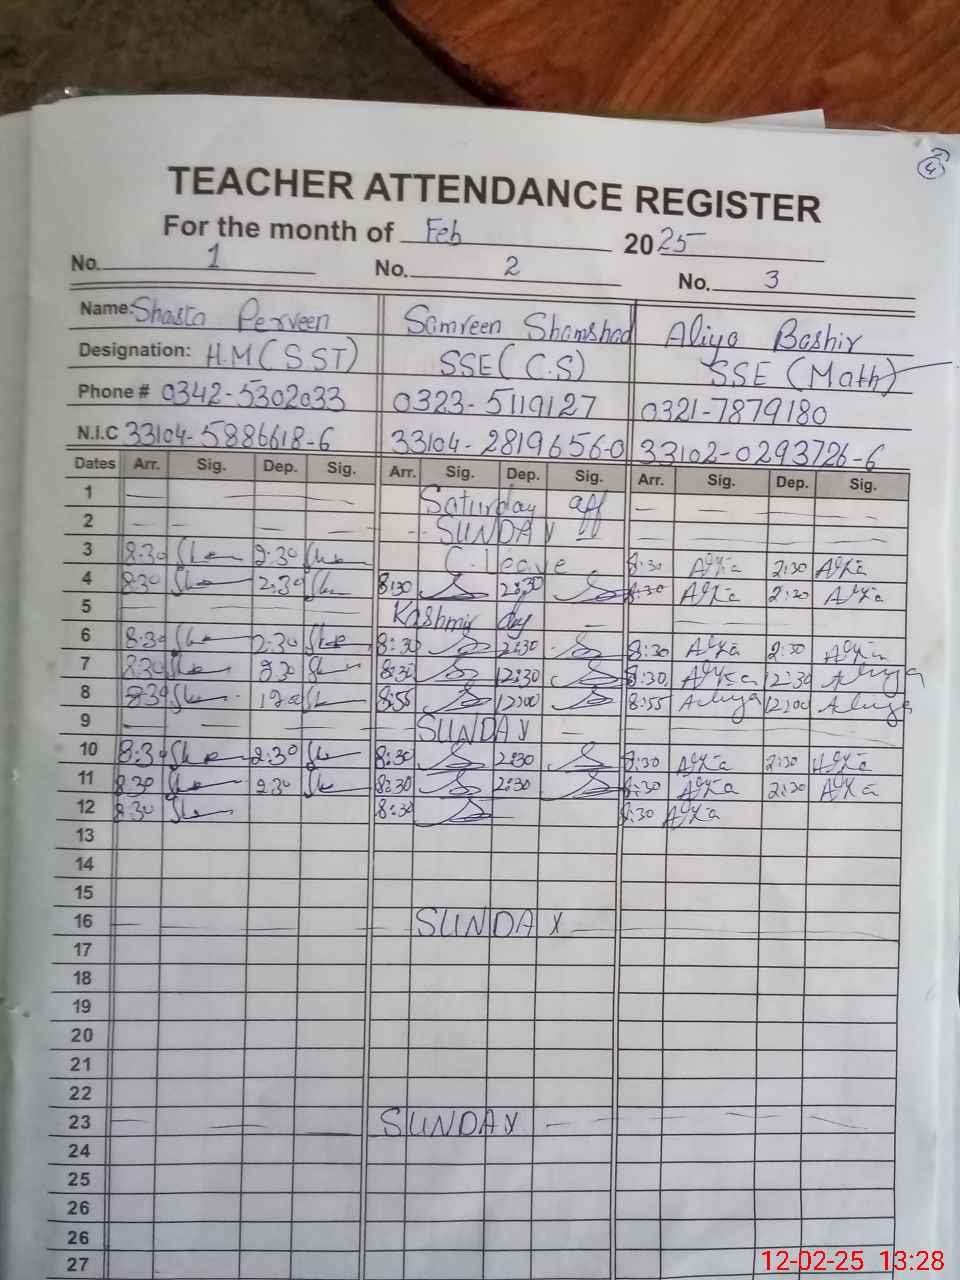 4
TEACHER ATTENDANCE REGISTER
For the month of Feb 2025
No. 1 No. 2 No. 3
Name: Shasta Perveen Samreen Shamshad Aliya Bashir
Designation: H.M(SST) SSE(C.S) SSE (Math)
Phone # 0342-5302033 0323-5119127 0321-7879180
N.I.C 33104-5886618-6 33104-2819656-0 33102-0293726-6
Dates Arr. Sig. Dep. Sig. Arr. Sig. Dep. Sig. Arr. Sig. Dep. Sig.
1 Saturday off
2 SUNDAY
3 8:30 2:30 C.leave 8:30 2:30
4 8:30 2:30 8:30 2:30 8:30 2:30
5 Kashmir day
6 8:30 2:30 8:30 2:30 8:30 2:30
7 8:30 8:30 12:30 8:30 12:30 Aliya
8 8:30 8:55 12:00 8:55 Aliya 12:00 Aliya
9 SUNDAY
10 8:30 2:30 8:30 2:30 8:30 2:30
11 8:30 2:30 8:30 2:30 8:30 2:30
12 8:30 8:30 8:30
13
14
15
16 SUNDAY
17
18
19
20
21
22
23 SUNDAY
24
25
26
26
27
12-02-25 13:28